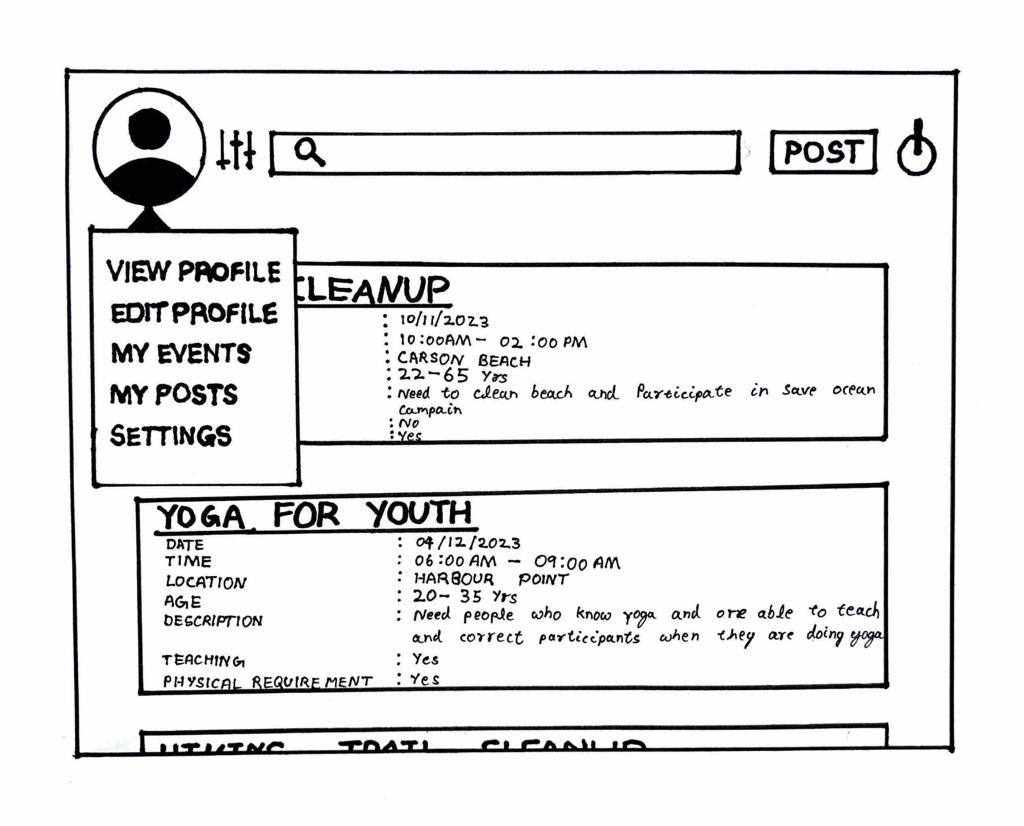 POST
VIEW PROFILE
EDIT PROFILE
MY EVENTS
MY POSTS
SETTINGS
CLEANUP
: 10/11/2023
: 10:00AM - 02:00 PM
: CARSON BEACH
: 22-65 Yrs
: Need to clean beach and Participate in save ocean
Campain
: No
: Yes
YOGA FOR YOUTH
DATE : 04/12/2023
TIME : 06:00 AM - 09:00 AM
LOCATION : HARBOUR POINT
AGE : 20-35 Yrs
DESCRIPTION : Need people who know yoga and are able to teach
and correct participants when they are doing yoga
TEACHING : Yes
PHYSICAL REQUIREMENT : Yes
HIKING TRAIL CLEANUP